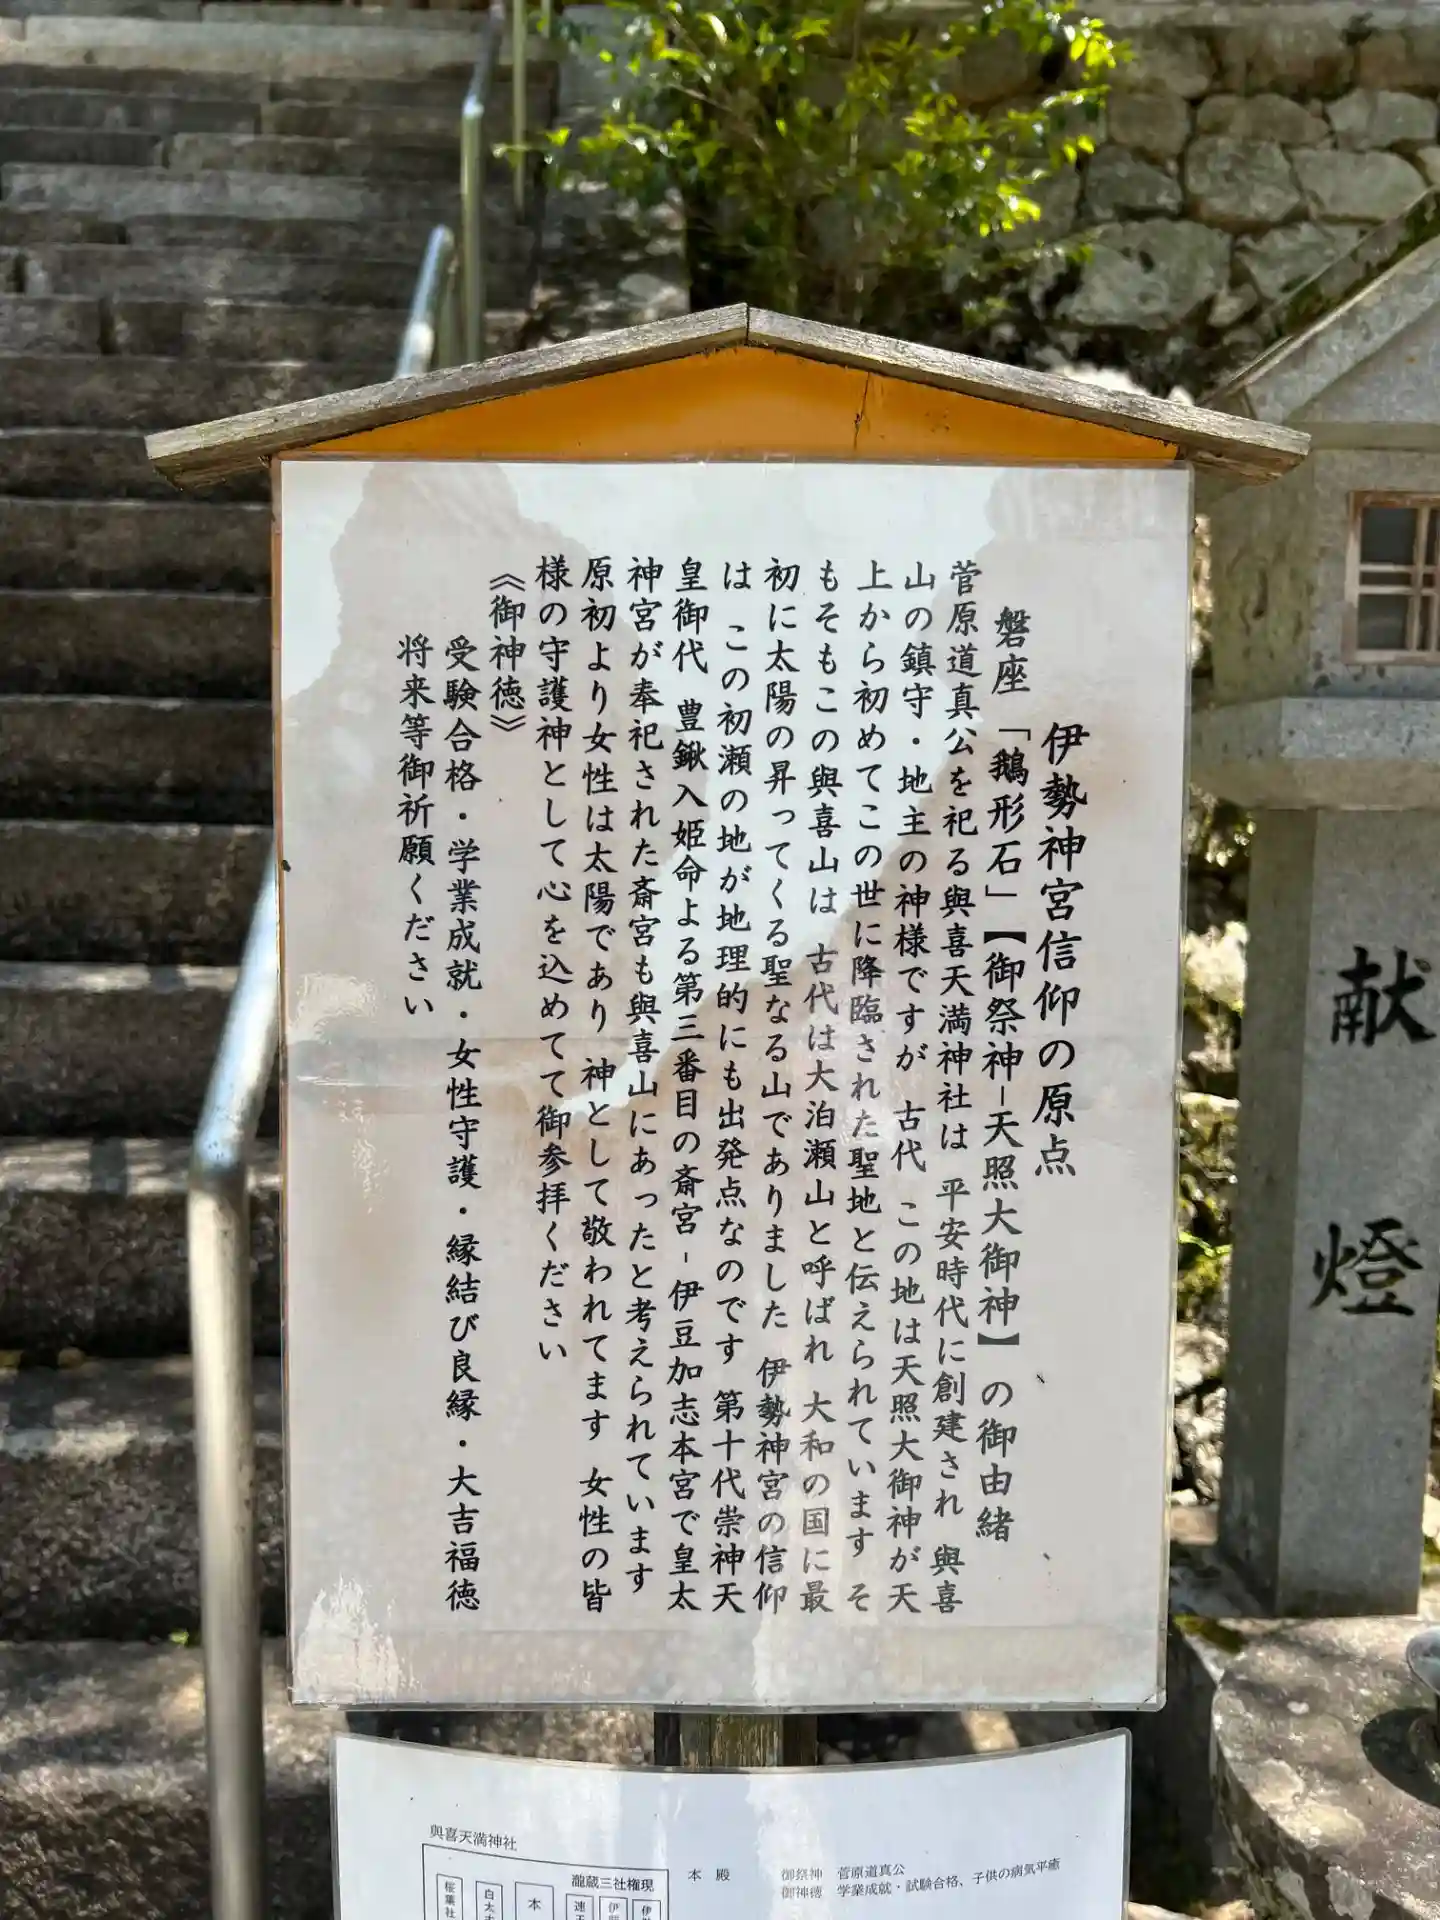 伊勢神宮信仰の原点
磐座 「鵝形石」【御祭神−天照大御神】 の御由緒
菅原道真公を祀る與喜天満神社は 平安時代に創建され 與喜
山の鎮守・地主の神様ですが 古代 この地は天照大御神が天
上から初めてこの世に降臨された聖地と伝えられています そ
もそもこの與喜山は 古代は大泊瀬山と呼ばれ 大和の国に最
初に太陽の昇ってくる聖なる山でありました 伊勢神宮の信仰
は この初瀬の地が地理的にも出発点なのです 第十代崇神天
皇御代 豊鍬入姫命よる第三番目の斎宮−伊豆加志本宮で皇太
神宮が奉祀された斎宮も與喜山にあったと考えられています
原初より女性は太陽であり 神として敬われてます 女性の皆
様の守護神として心を込めてて御参拝ください
《御神徳》
受験合格・学業成就・女性守護・縁結び良縁・大吉福徳
将来等御祈願ください
献燈
與喜天満神社
本 殿 御祭神 菅原道真公
御神徳 学業成就・試験合格、子供の病気平癒
瀧蔵三社権現
桜葉社
白太
本
速
伊